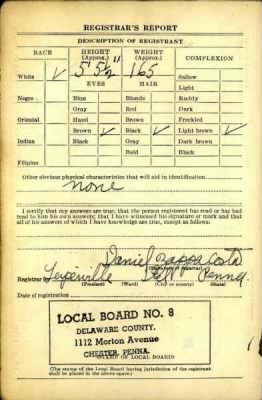 REGISTRAR'S REPORT
DESCRIPTION OF REGISTRANT
RACE HEIGHT (Approx.) WEIGHT (Approx.) COMPLEXION
White ✓ 5' 5½" 165 Sallow
EYES HAIR Light
Negro Blue Blonde Ruddy
Gray Red Dark
Oriental Hazel Brown Freckled
Brown ✓ Black ✓ Light brown ✓
Indian Black Gray Dark brown
Bald Black
Filipino
Other obvious physical characteristics that will aid in identification
None
I certify that my answers are true; that the person registered has read or has had
read to him his own answers; that I have witnessed his signature or mark and that
all of his answers of which I have knowledge are true, except as follows:
Daniel Costa
(Signature of registrar)
Registrar for Del. Penna.
(Precinct) (Ward) (City or county) (State)
Date of registration
LOCAL BOARD NO. 8
DELAWARE COUNTY,
1112 Morton Avenue
CHESTER, PENNA.
(STAMP OF LOCAL BOARD)
(The stamp of the Local Board having jurisdiction of the registrant
shall be placed in the above space.)